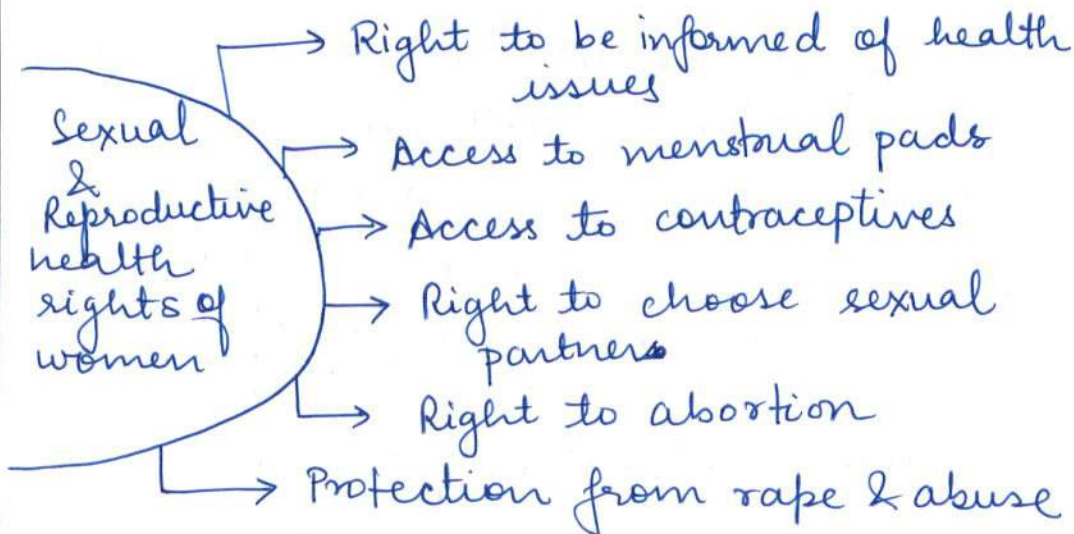 Sexual
&
Reproductive
health
rights of
women
Right to be informed of health
issues
Access to menstrual pads
Access to contraceptives
Right to choose sexual
partners
Right to abortion
Protection from rape & abuse